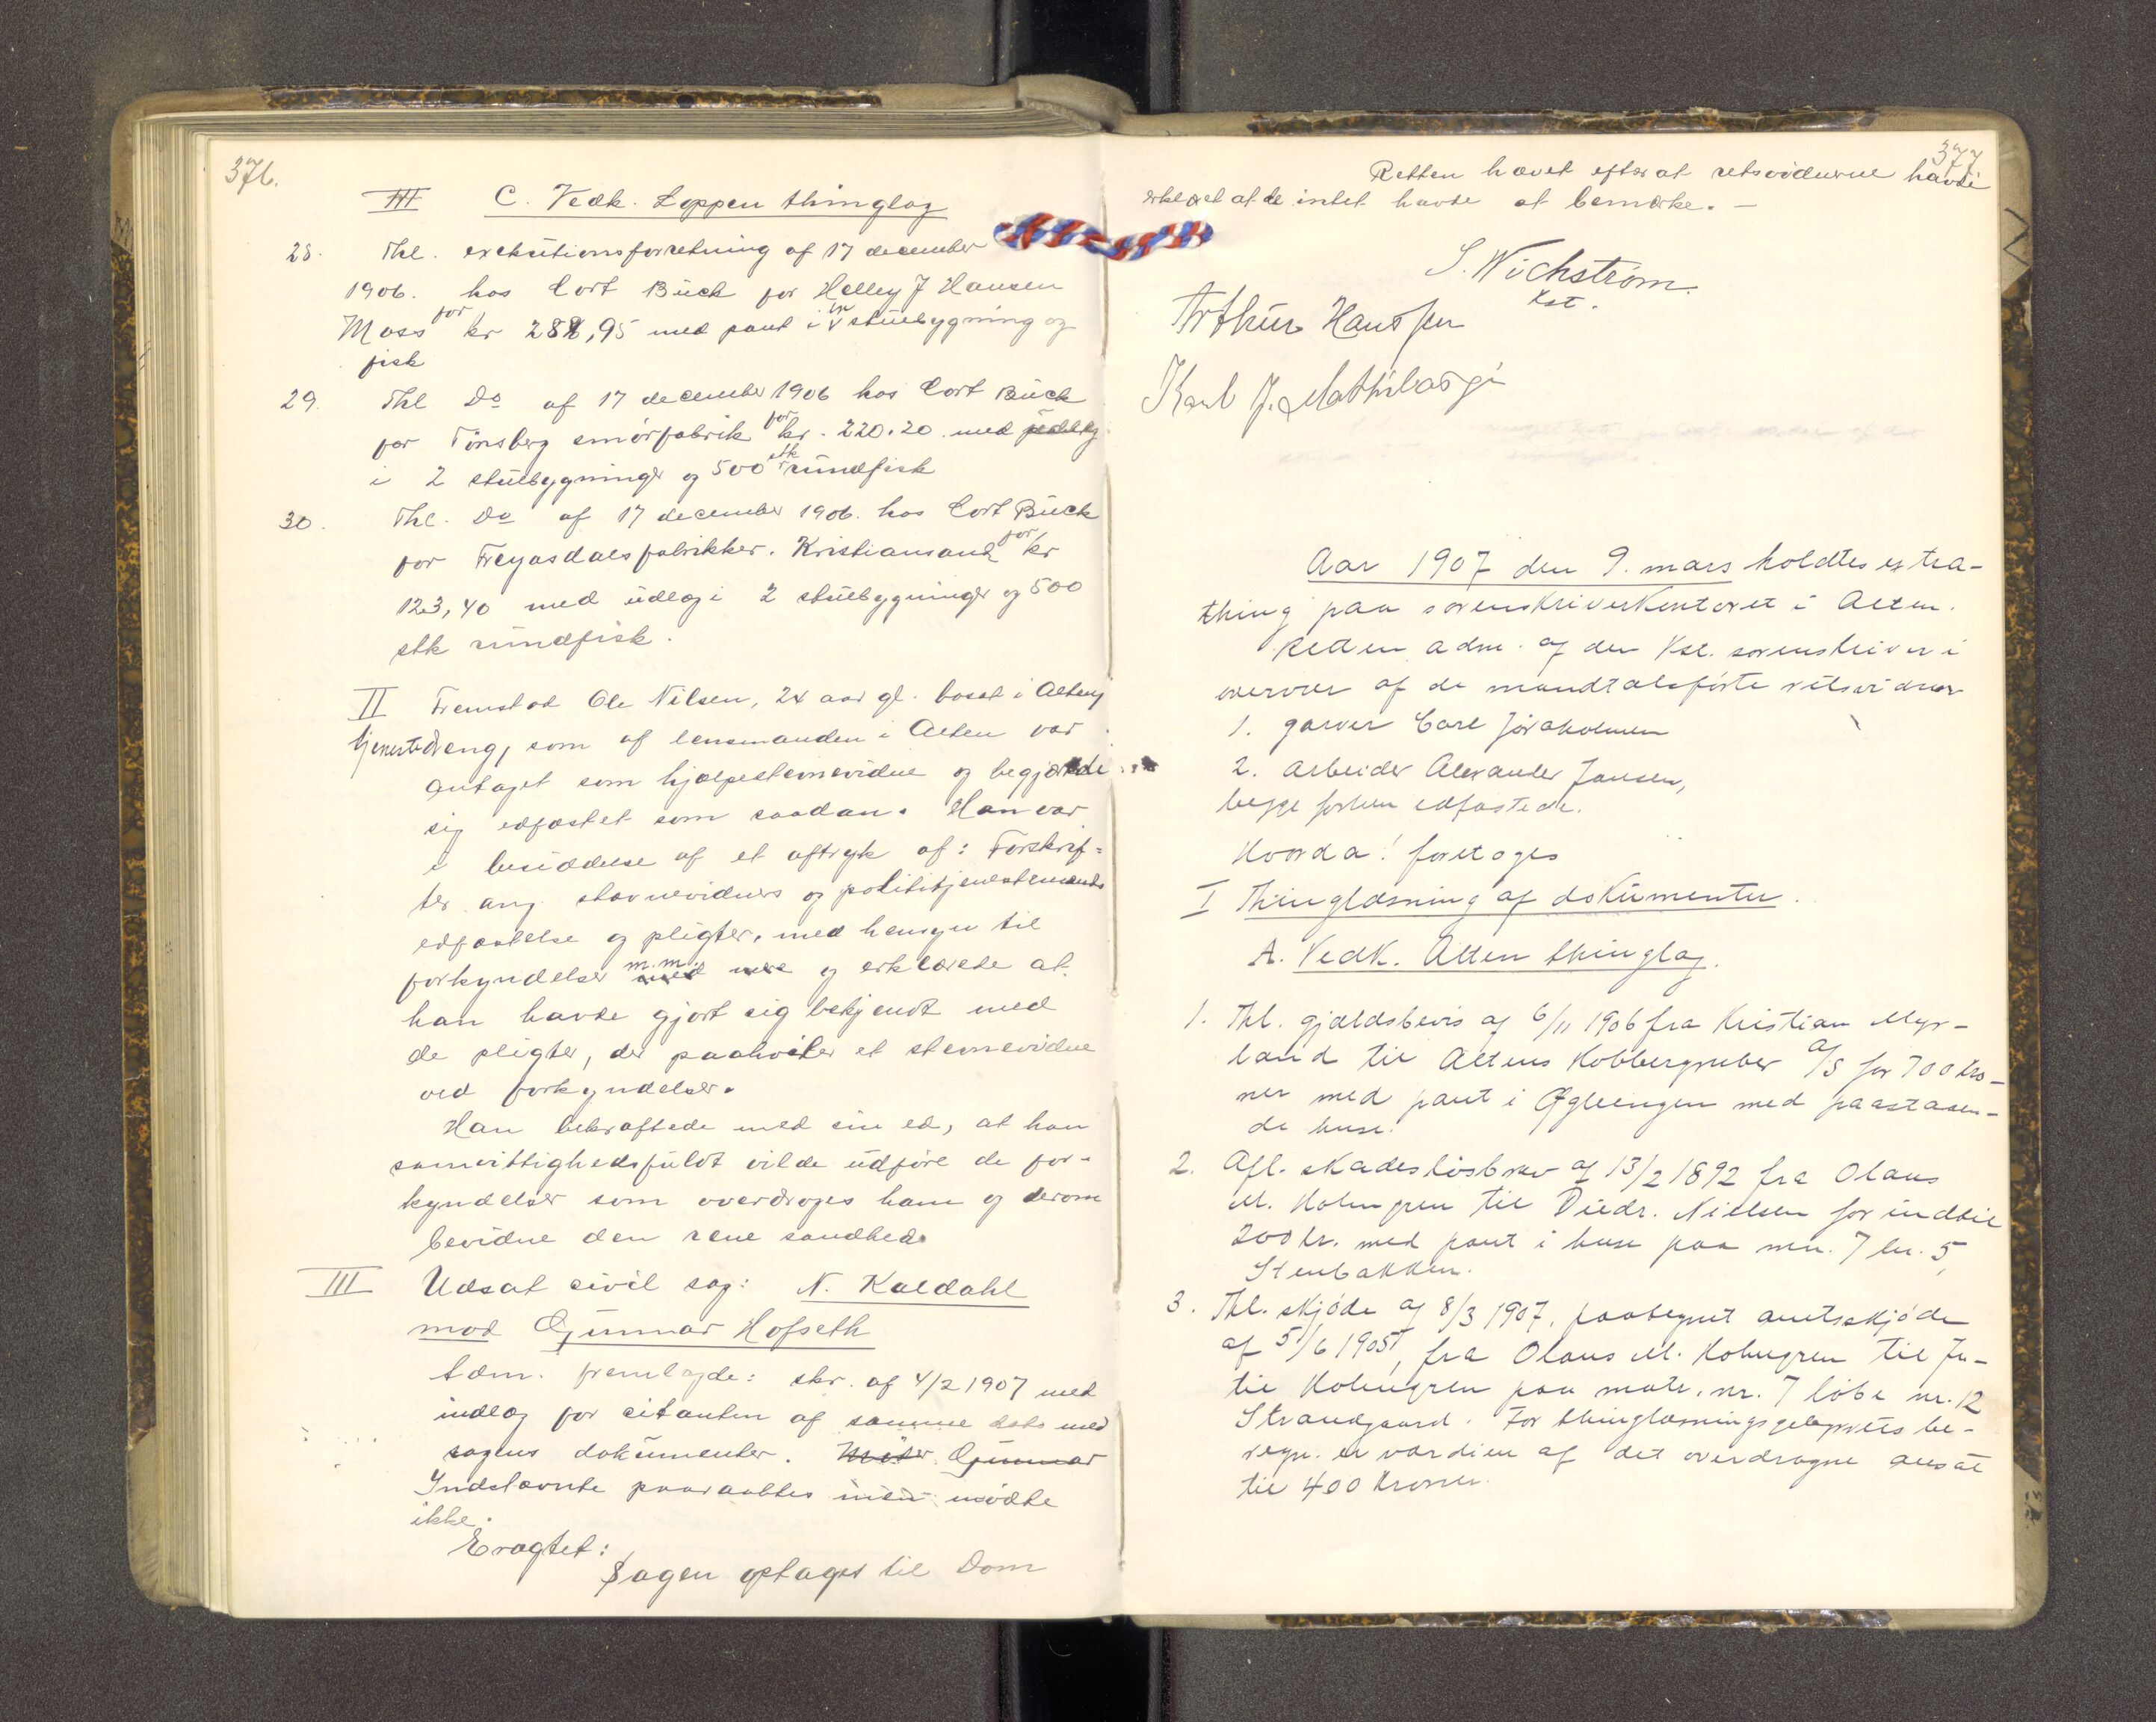 376.
III C. Vedk. Loppen thinglag
28. Thl. exekutionsforretning af 17 december
1906. hos Cort Buck for Helley J Hansen
Moss for kr 288,95 med pant i en stuebygning og
fisk
29. Thl Do af 17 december 1906 hos Cort Buck
for Tønsberg smørfabrik for kr. 220.20. med udlæg
i 2 stuebygninger og 500 stk rundfisk
30. Thl. Do af 17 december 1906. hos Cort Buck
for Freyasdals fabrikker. Kristiansand for kr
123,40 med udlæg i 2 stuebygninger og 500
stk rundfisk.
II Fremstod Ole Nilsen, 24 aar gl. bosat i Alten,
tjenestedreng, som af lensmanden i Alten var
antaget som hjælpestevnevidne og begjærede
sig edfæstet som saadan. Han var
i besiddelse af et aftryk af: Forskrif-
ter ang. stævnevidners og polititjenestemænds
edfæstelse og pligter, med hensyn til
forkyndelser m.m. og erklærede at
han havde gjort sig bekjendt med
de pligter, der paahviler et stevnevidne
ved forkyndelser.
Han bekræftede med sin ed, at han
samvittighedsfuldt vilde udføre de for-
kyndelser som overdroges ham og derom
bevidne den rene sandhed.
III Udsat civil sag: N. Kaldahl
mod Gunnar Hofseth
Adm. fremlagde: skr. af 4/2 1907 med
indlæg for citanten af samme dato med
sagens dokumenter. Møter Gunnar
Indstævnte paaraabtes men mødte
ikke.
Eragtet:
Sagen optages til Dom
377
Retten hævet efterat retsvidnerne havde
erklæret at de intet havde at bemærke. –
S. Wichstrøm
Kst.
Arthur Hanssen
Karl J.
Aar 1907 den 9. mars holdtes extra-
thing paa sorenskriverkontoret i Alten.
Retten adm. af den kst. sorenskriver i
overvær af de mandtalsførte retsvidner
1. garver Carl Jøraholmen
2. arbeider Alexander Jansen,
begge forhen edfæstede.
Hvorda! foretoges
I Thinglæsning af dokumenter.
A. Vedk. Alten thinglag.
1. Thl. gjældsbevis af 6/11 1906 fra Kristian Myr-
land til Altens Kobbergruber A/S for 700 kro-
ner med pant i Øgleengen med paastaaen-
de huse.
2. Afl. skadesløsbrev af 13/2 1892 fra Olaus
M. Holmgren til Diedr. Nielsen for indtil
200 kr. med pant i huse paa mn. 7 ln. 5,
Stenbakken.
3. Thl. skjøde af 8/3 1907, paategnet amtsskjøde
af 5/6 1905, fra Olaus M. Holmgren til Ju-
lie Holmgren paa matr. nr. 7 løbe nr. 12
Strandgaard. For thinglæsningsgebyrets be-
regn. er værdien af det overdragne ansat
til 400 kroner.